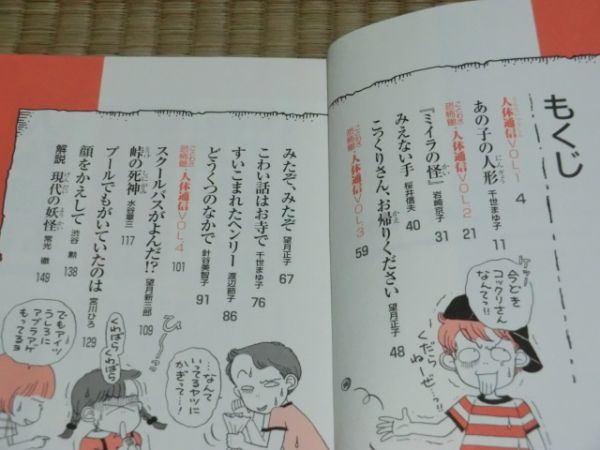 もくじ
人体通信VOL.1 4
あの子の人形 千世まゆ子 11
人体通信VOL.2 21
『ミイラの怪』 岩崎京子 31
みえない手 桜井信夫 40
こっくりさん、お帰りください 望月正子 48
人体通信VOL.3 59
みたぞ、みたぞ 望月正子 67
こわい話はお寺で 千世まゆ子 76
すいこまれたヘンリー 渡辺節子 86
どうくつのなかで 針谷美智子 91
人体通信VOL.4 101
スクールバスがよんだ!? 望月新三郎 109
峠の死神 水谷章三 117
プールでもがいていたのは 宮川ひろ 129
顔をかえして 渋谷勲 138
解説 現代の妖怪 常光徹 149
今どき
コックリさん
なんてっ!!
ケッー
くだらねーぜ…っ
…なんて
いってるヤツに
かぎって…!
ひ〜っ
くわばら
くわばら
でもアイツ
うしろに
アブラアゲ
もってるぅ